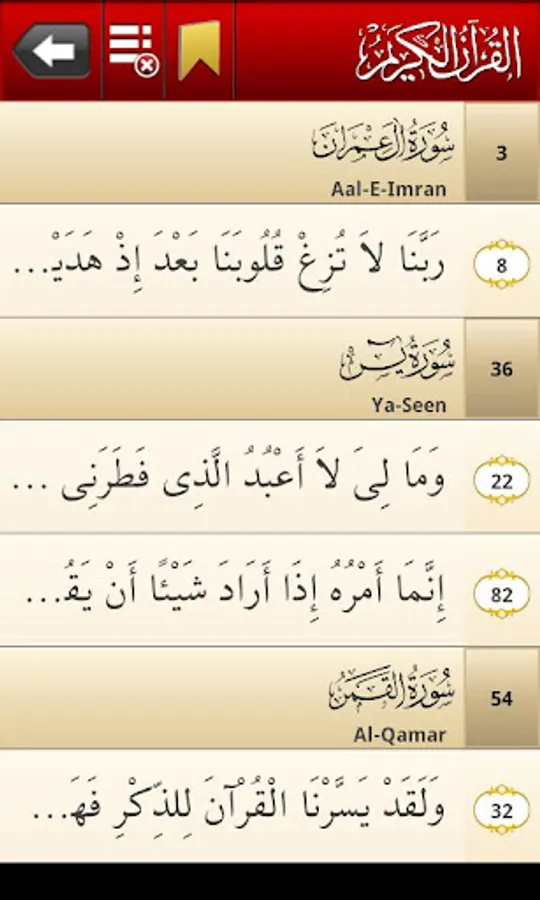 القرآن الكريم
سُورَةُ آلِ عِمْرَان
3
Aal-E-Imran
رَبَّنَا لاَ تُزِغْ قُلُوبَنَا بَعْدَ إِذْ هَدَيْـ...
8
سُورَةُ يسٓ
36
Ya-Seen
وَمَا لِىَ لاَ أَعْبُدُ الَّذِى فَطَرَنِى ...
22
إِنَّمَا أَمْرُهُ إِذَا أَرَادَ شَيْئًا أَنْ يَقُـ...
82
سُورَةُ القَمَرِ
54
Al-Qamar
وَلَقَدْ يَسَّرْنَا الْقُرْآنَ لِلذِّكْرِ فَهَـ...
32